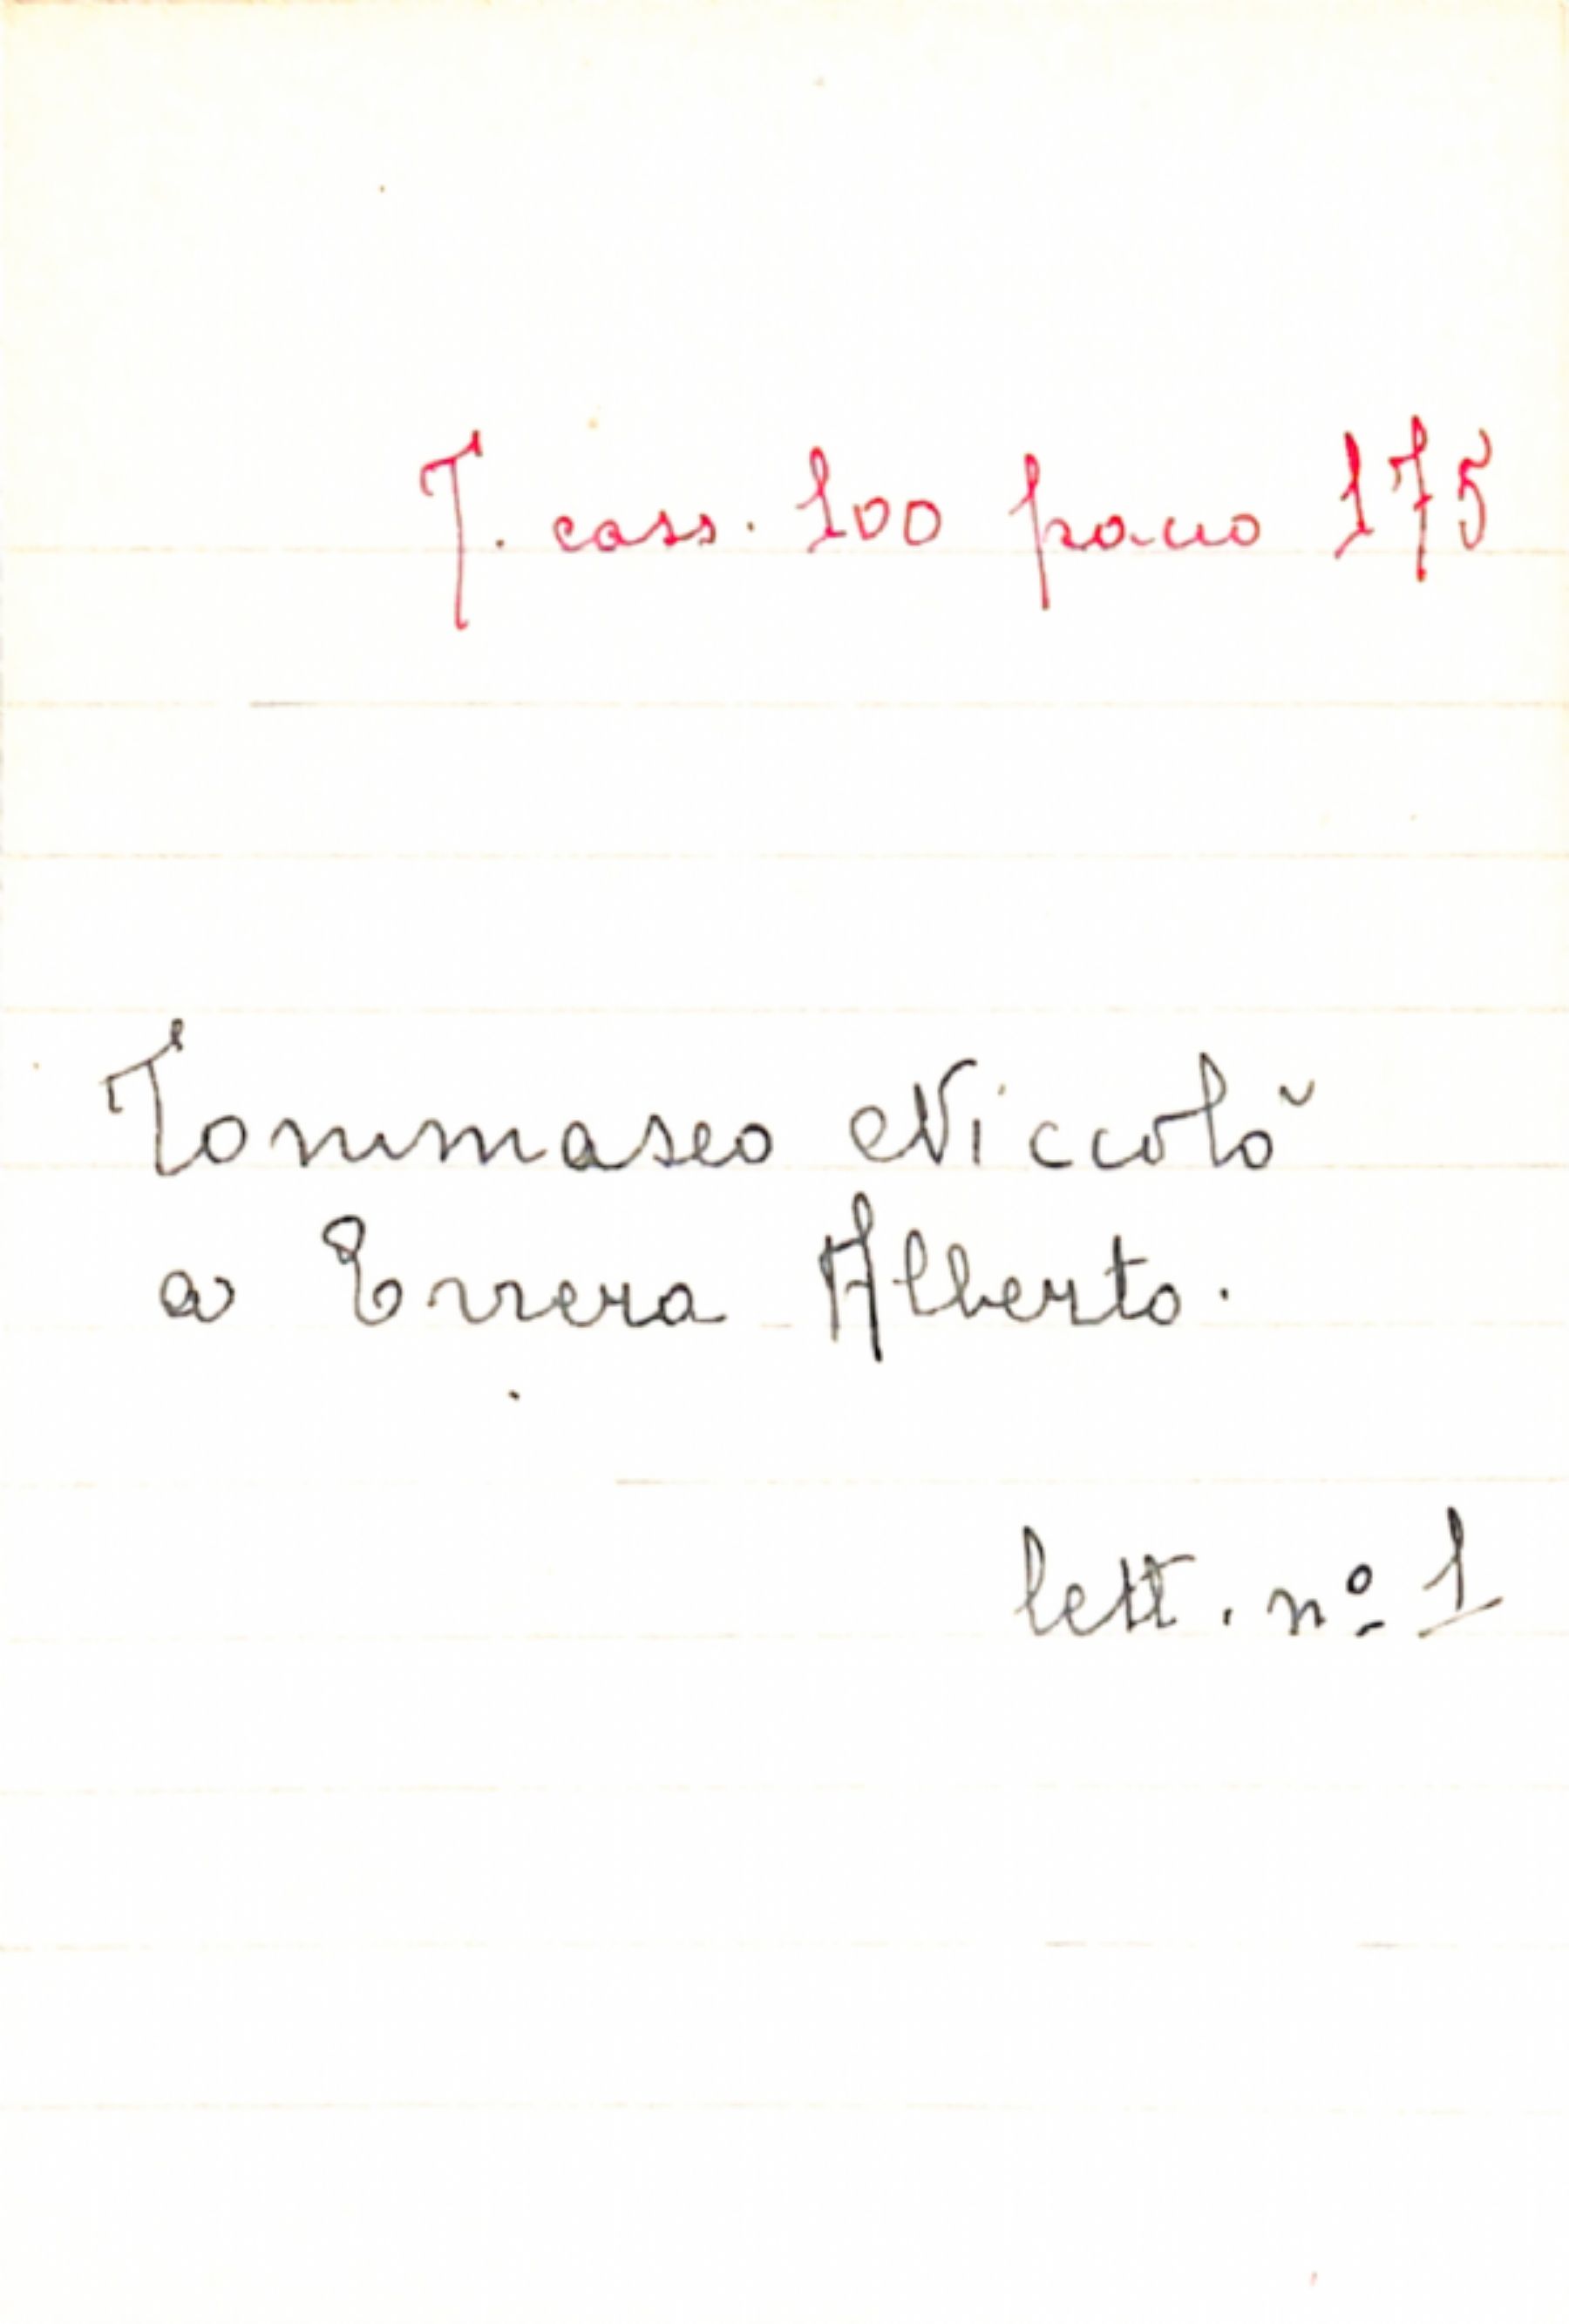 T. cass. 100 pacco 175
Tommaseo Niccolò
a Errera Alberto.
lett. nº 1